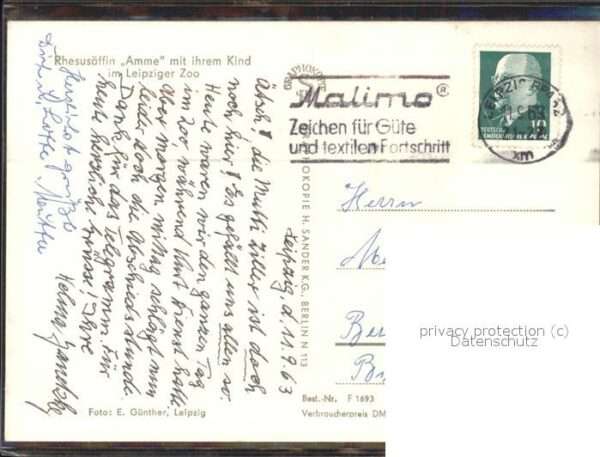 Rhesusäffin „Amme" mit ihrem Kind
im Leipziger Zoo
Leipzig, d. 11.9.63
Ätsch! die Mutti Ziller ist doch
noch hier! Es gefällt uns allen so.
Heute waren wir den ganzen Tag
im Zoo, während Kurt Dienst hatte
Aber morgen mittag schlägt nun
leider doch die Abschiedsstunde.
Dank für das Telegramm. Für
heute herzliche Grüsse! Ihre
Helma
Herzlichst grüßt
Lotte
Malimo ®
Zeichen für Güte
und textilen Fortschritt
LEIPZIG
xm
10
DEUTSCHE
DEMOKRATISCHE REPUBLIK
Herrn
KOPIE H. SANDER K.G., BERLIN N 113
Foto: E. Günther, Leipzig
Best.-Nr. F 1693
Verbraucherpreis DM
privacy protection (c)
Datenschutz